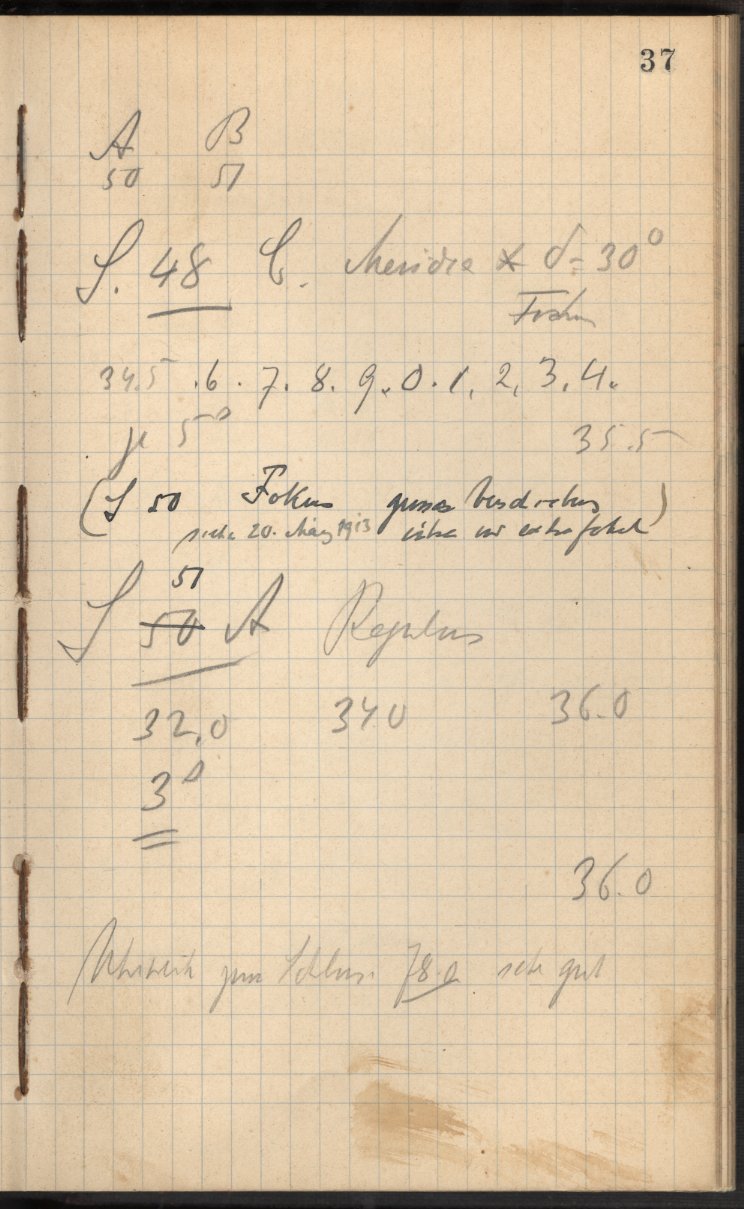 37
A B
50 51
S. 48 C. Meridia * δ = 30°
Fokus
34.5 .6 . 7. 8. 9. 0. 1. 2, 3, 4.
je 5°
35.5
(S 50 Fokus
siehe 20. März 1913 extrafokal)
51
S 50 A Regulus
32,0 340 36.0
3°
36.0
zum Schluss 78.0 sehr gut